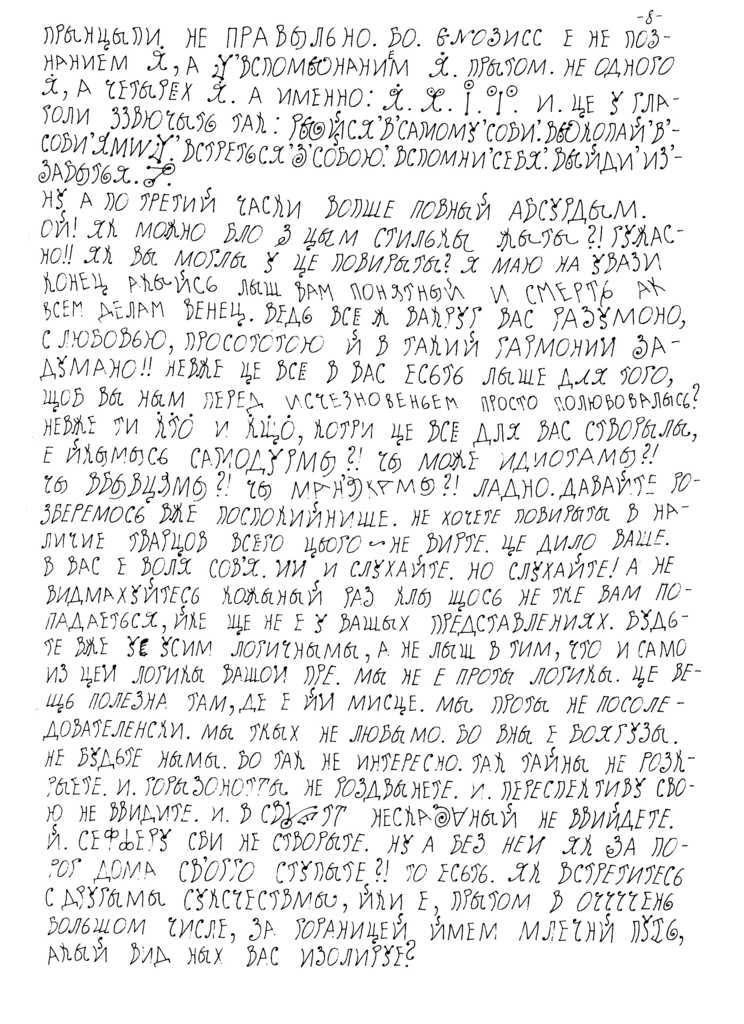 -8-
ПРЫНЦЫПИ. НЕ ПРАВЫЛЬНО. БО. ГНОЗИСС Е НЕ ПОЗ-
НАНИЕМ Я, А ВСПОМЫНАНИЕМ Я. ПРЫТОМ. НЕ ОДНОГО
Я, А ЧЕТЫРЕХ Я. А ИМЕННО: И. ЦЕ У ГЛА-
ГОЛИ ЗЗВЮЧЫТЬ ТАК: РЫЙСЯ'В'САМОМУ'СОБИ'.ВЫКОПАЙ'В'-
СОБИ' ВСТРЕТЬСЯ'З'СОБОЮ'. ВСПОМНИ'СЕБЯ'. ВЫЙДИ'ИЗ'-
ЗАБЫТЬЯ.
НУ А ПО ТРЕТИЙ ЧАСКИ ВОПШЕ ПОВНЫЙ АБСУРДЫМ.
ОЙ! ЯК МОЖНО БЛО З ЦЫМ СТИЛЬКЫ ЖЫТЫ?! ГУЖАС-
НО!! ЯК ВЫ МОГЛЫ У ЦЕ ПОВИРЫТЫ? Я МАЮ НА УВАЗИ
КОНЕЦ АКЫЙСЬ ЛЫШ ВАМ ПОНЯТНЫЙ И СМЕРТЬ АК
ВСЕМ ДЕЛАМ ВЕНЕЦ. ВЕДЬ ВСЕ Ж ВАКРУГ ВАС РАЗУМОНО,
С ЛЮБОВЬЮ, ПРОСОТОТОЮ Й В ТАКИЙ ГАРМОНИИ ЗА-
ДУМАНО!! НЕВЖЕ ЦЕ ВСЕ В ВАС ЕСЬТЬ ЛЫШЕ ДЛЯ ТОГО,
ЩОБ ВЫ НЫМ ПЕРЕД ИСЧЕЗНОВЕНЬЕМ ПРОСТО ПОЛЮБОВАЛЫСЬ?
НЕВЖЕ ТИ КТО И КЩО, КОТРИ ЦЕ ВСЕ ДЛЯ ВАС СТВОРЫЛЫ,
Е ЙКЫМЫСЬ САМОДУРМЫ?! ЧЫ МОЖЕ ИДИОТАМЫ?!
ЧЫ ВБЫВЦЯМЫ?! ЧЫ МАНЭКАМЫ?! ЛАДНО. ДАВАЙТЕ РО-
ЗБЕРЕМОСЬ ВЖЕ ПОСПОКИЙНИШЕ. НЕ ХОЧЕТЕ ПОВИРЫТЫ В НА-
ЛИЧИЕ ТВАРЦОВ ВСЕГО ЦЬОГО ~ НЕ ВИРТЕ. ЦЕ ДИЛО ВАШЕ.
В ВАС Е ВОЛЯ СОВ'Я. ИИ И СЛУХАЙТЕ. НО СЛУХАЙТЕ! А НЕ
ВИДМАХУЙТЕСЬ КОЖЫНЫЙ РАЗ КЛЫ ЩОСЬ НЕ ТКЕ ВАМ ПО-
ПАДАЕТЬСЯ, ЙКЕ ЩЕ НЕ Е У ВАШЫХ ПРЕДСТАВЛЕНИЯХ. БУДЬ-
ТЕ ВЖЕ УСИМ ЛОГИЧНЫМЫ, А НЕ ЛЫШ В ТИМ, ЧТО И САМО
ИЗ ЦЕИ ЛОГИКЫ ВАШОИ ПРЕ. МЫ НЕ Е ПРОТЫ ЛОГИКЫ. ЦЕ ВЕ-
ЩЬ ПОЛЕЗНА ТАМ, ДЕ Е ЙИ МИСЦЕ. МЫ ПРОТЫ НЕ ПОСОЛЕ-
ДОВАТЕЛЕНСКИ. МЫ ТКЫХ НЕ ЛЮБЫМО. БО ВНЫ Е БОЯГУЗЫ.
НЕ БУДЬТЕ НЫМЫ. БО ТАК НЕ ИНТЕРЕСНО. ТАК ТАЙНЫ НЕ РОЗК-
РЫЕТЕ. И. ГОРЫЗОНОТТЫ НЕ РОЗДВЫНЕТЕ. И. ПЕРЕСПЕКТИВУ СВО-
Ю НЕ ВВИДИТЕ. И. В НЕСКАЗАННЫЙ НЕ ВВИЙДЕТЕ.
Й. СЕФФЕРУ СБИ НЕ СТВОРЫТЕ. НУ А БЕЗ НЕИ ЯК ЗА ПО-
РОГ ДОМА СВ'ОГГО СТУПЫТЕ?! ТО ЕСЬТЬ. ЯК ВСТРЕТИТЕСЬ
С ДРУГЫМЫ СУКСЧЕСТВМЫ, ЙКИ Е, ПРЫТОМ В ОЧЧЧЧЕНЬ
БОЛЬШОМ ЧИСЛЕ, ЗА ГОРАНИЦЕЙ ЙМЕМ МЛЕЧНЙ ПУТЬ,
АКЫЙ ВИД НЫХ ВАС ИЗОЛИРУЕ?